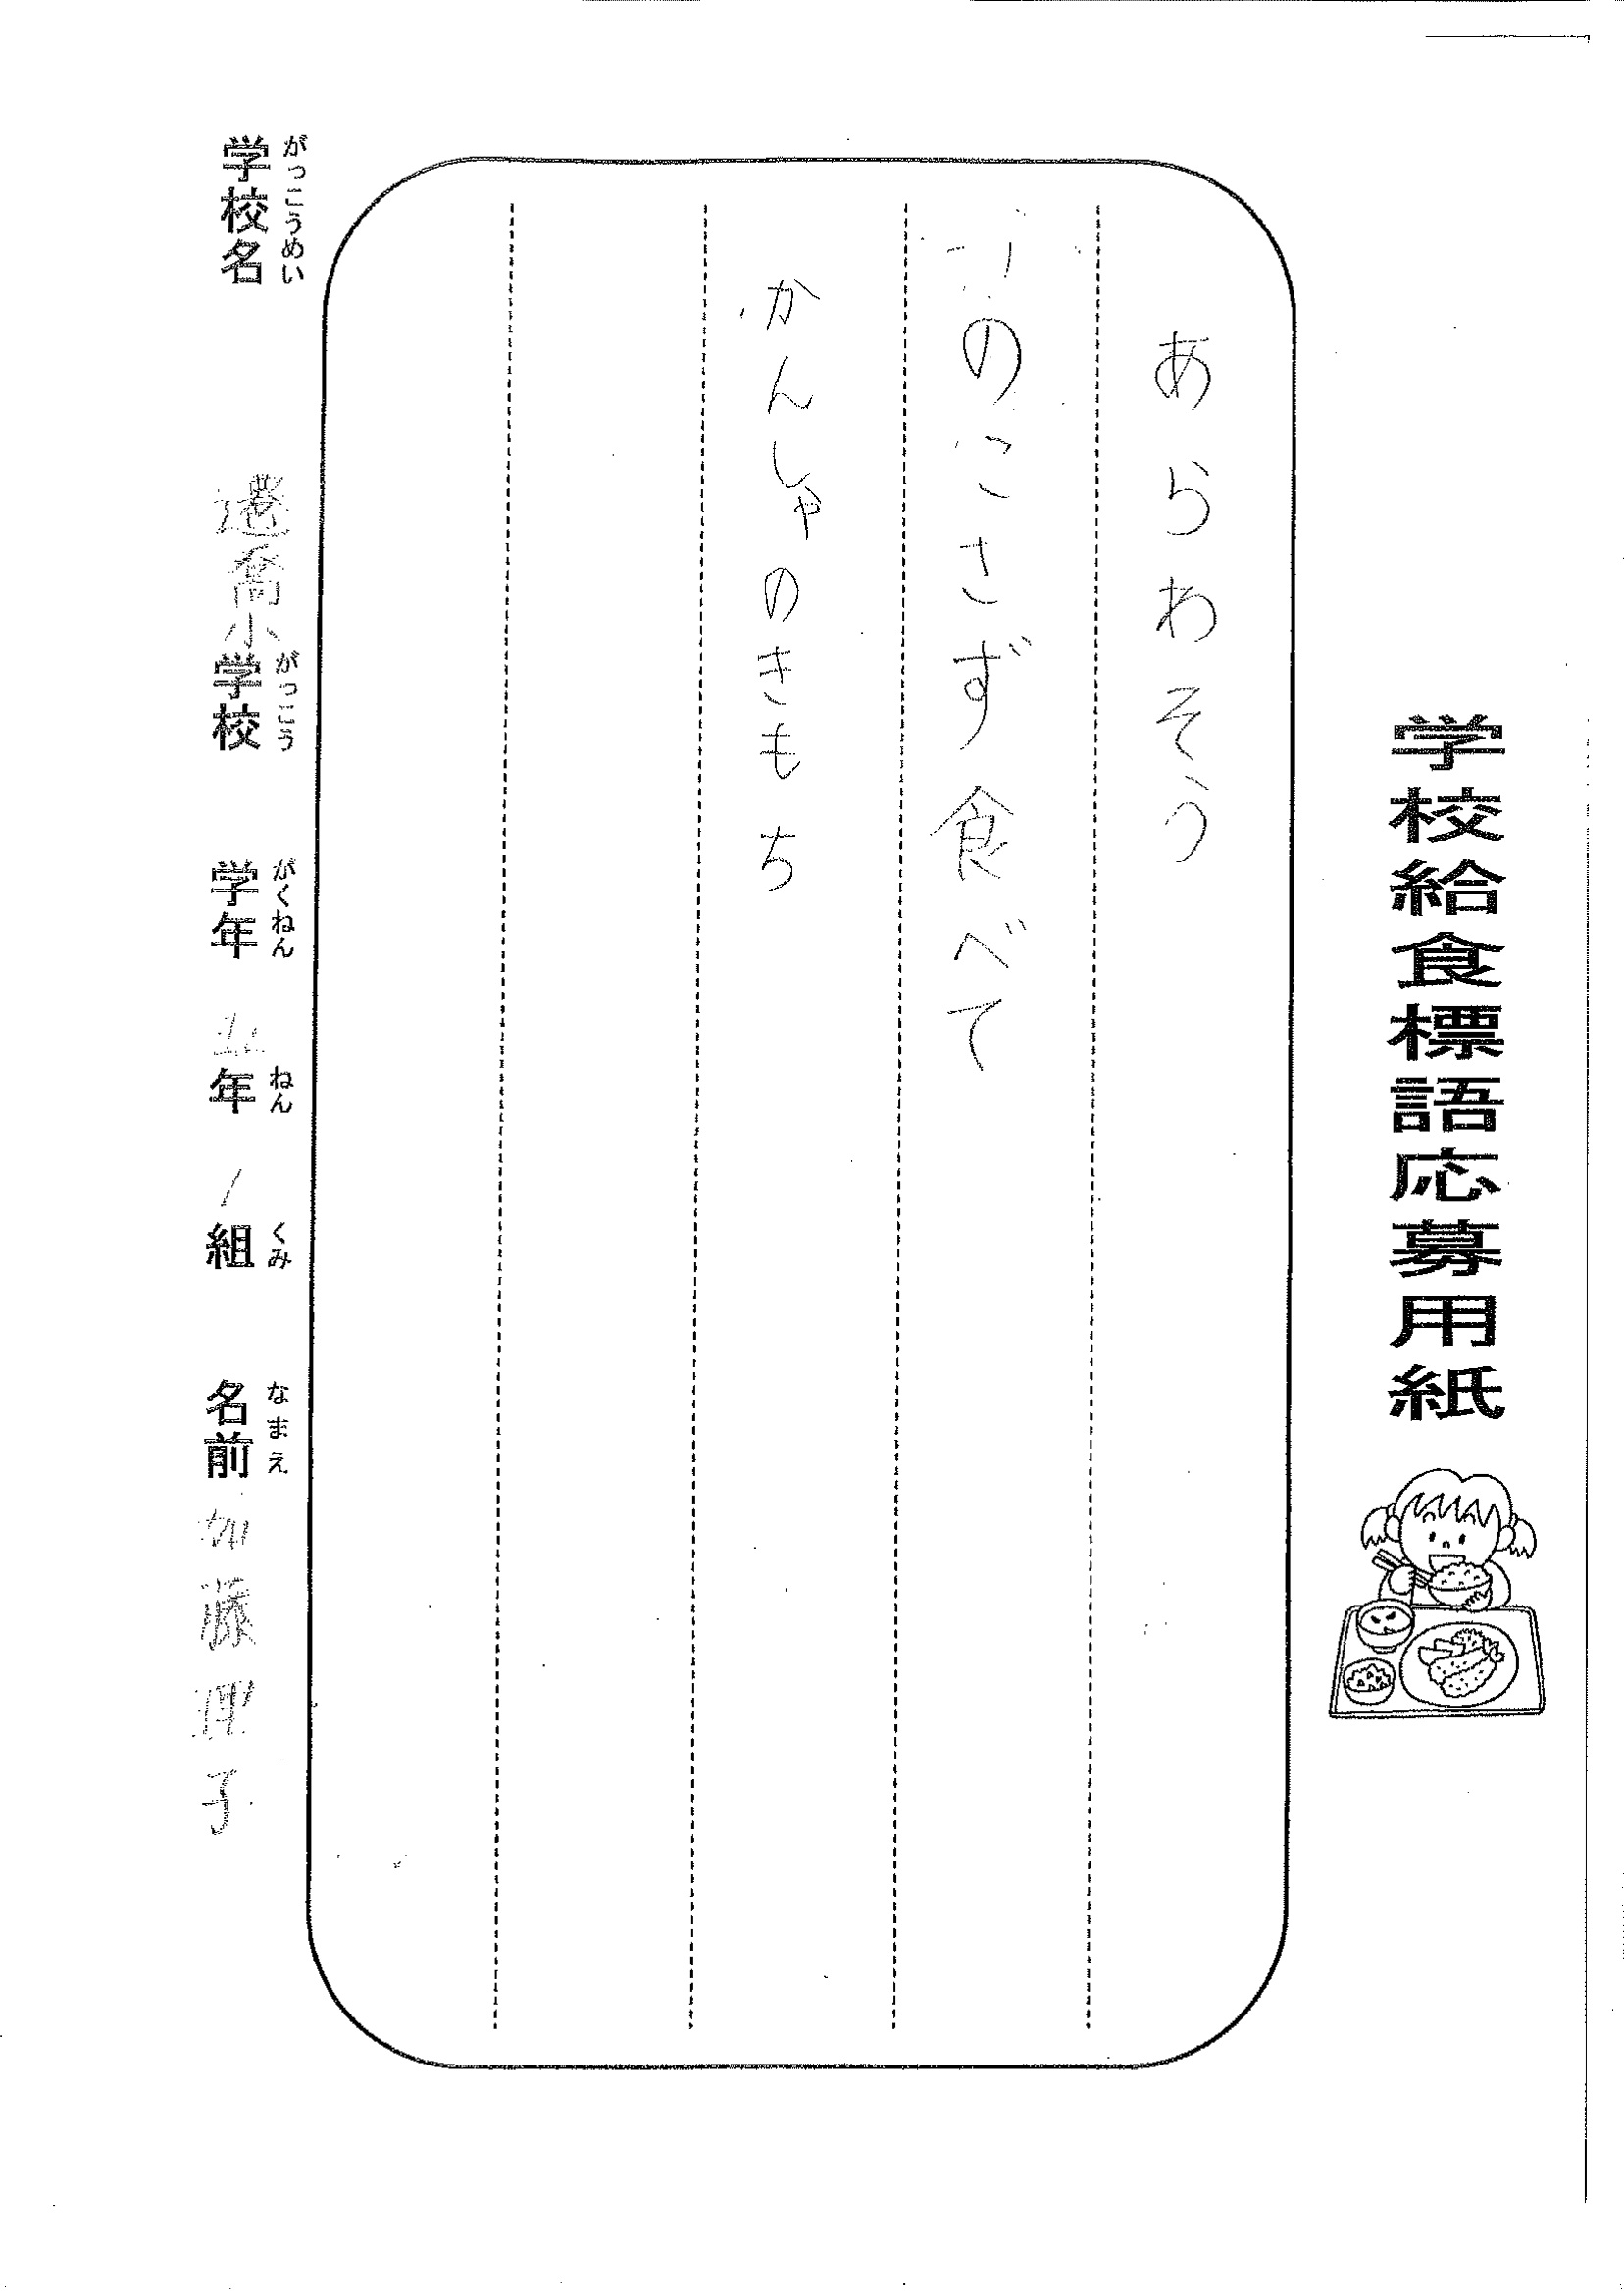 学校給食標語応募用紙
あらわそう
のこさず食べて
かんしゃのきもち
がっこうめい
学校名
遷喬小
がっこう
学校
がくねん
学年
五
ねん
年
1
くみ
組
なまえ
名前
加藤理子